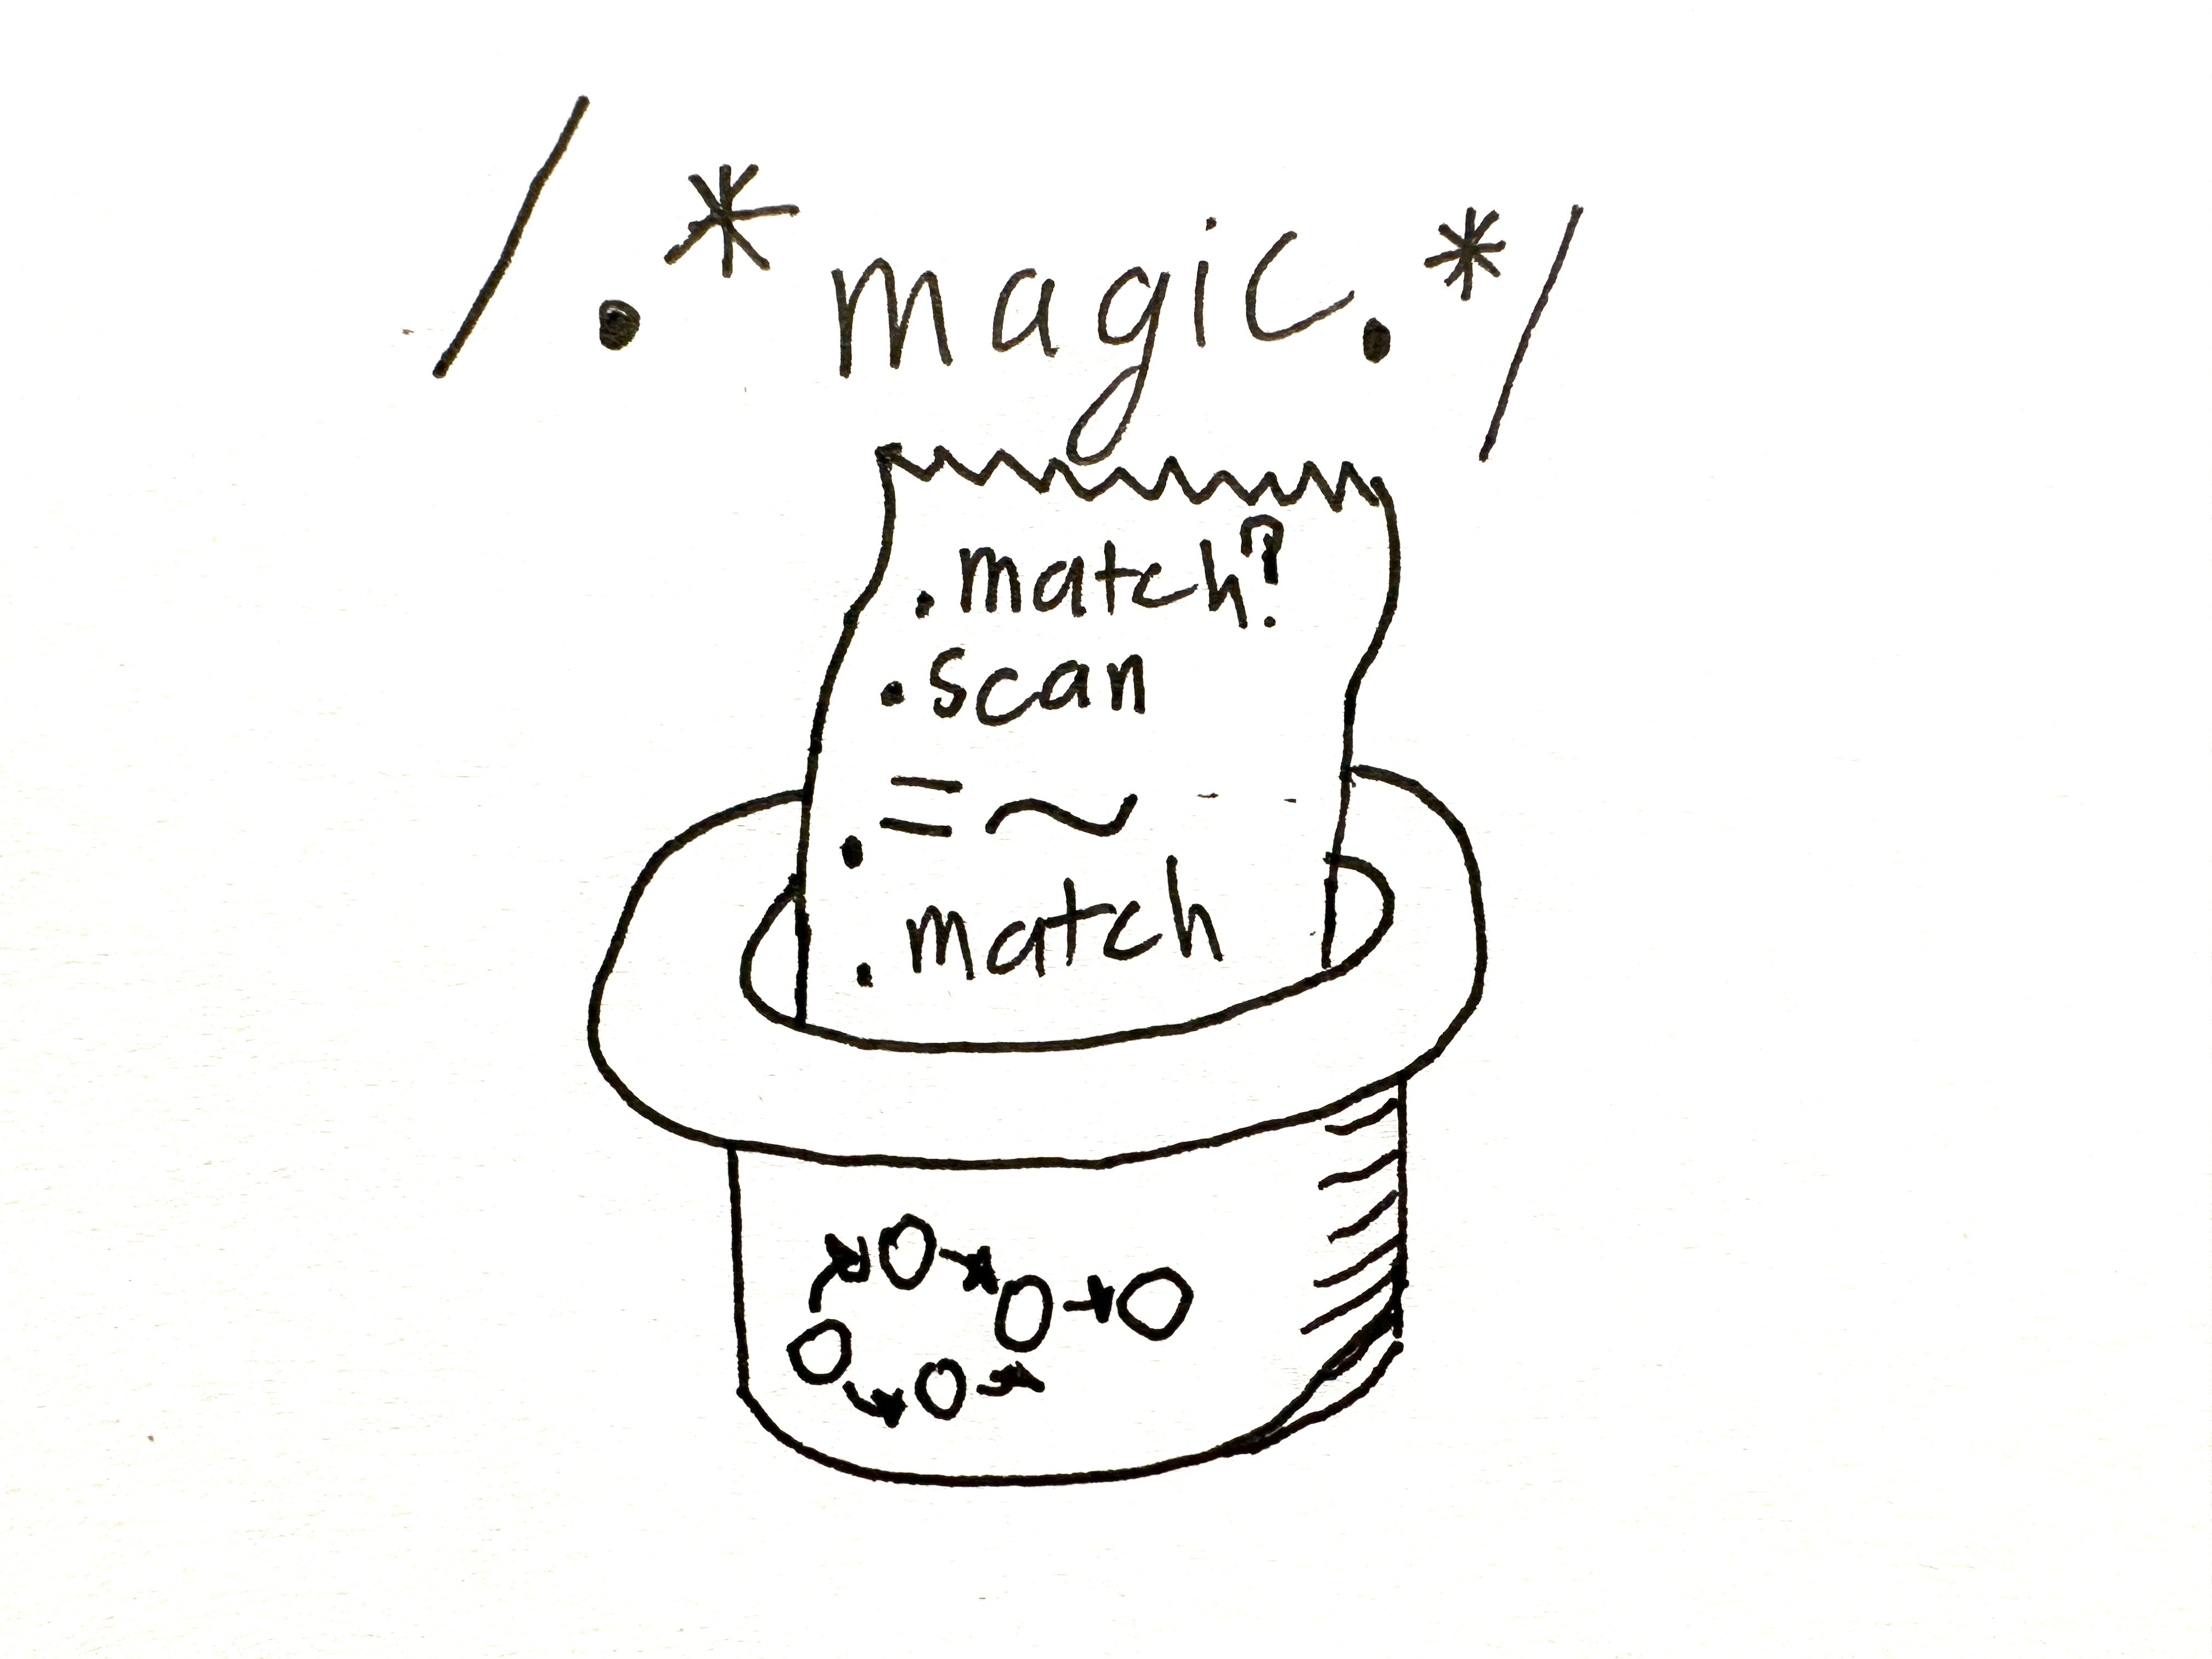 /.*magic.*/
.match?
.scan
.=~
.match